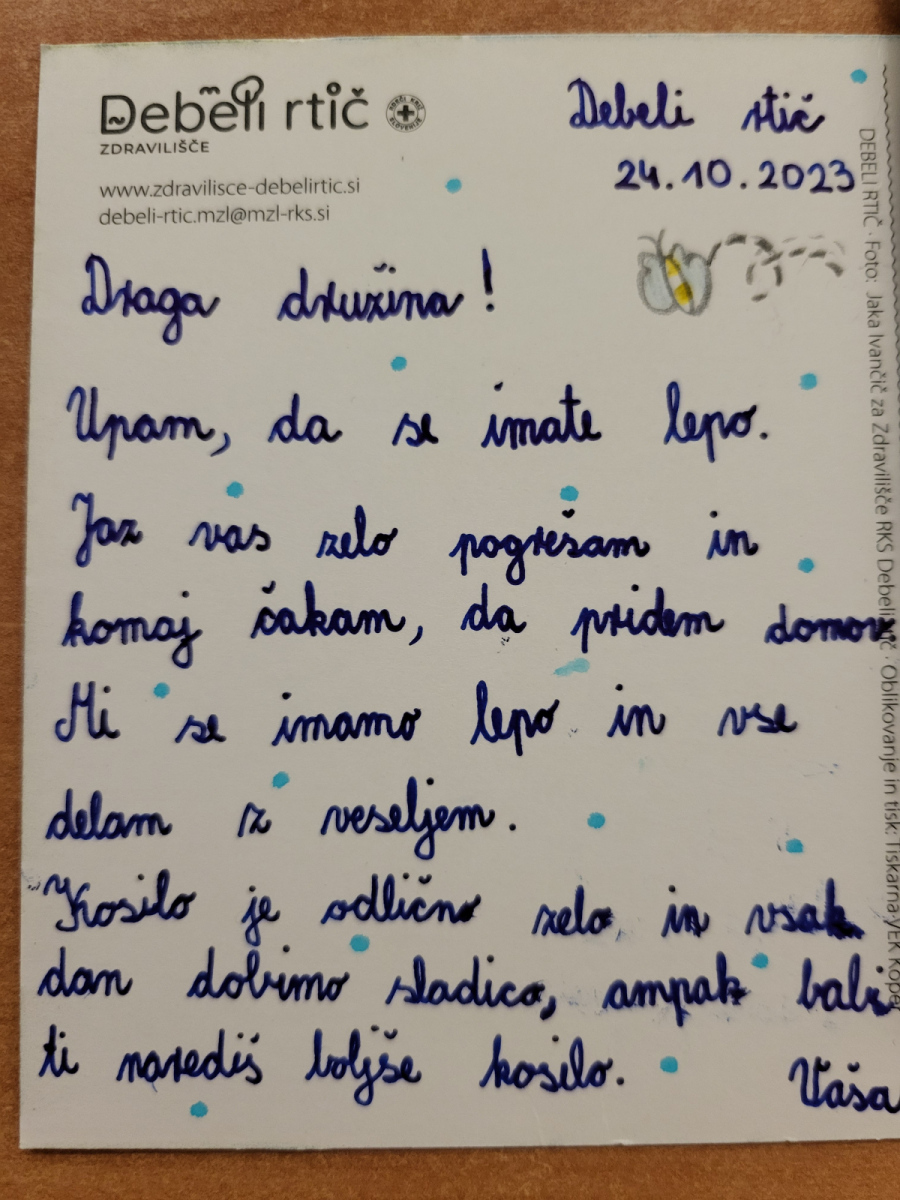 Debeli rtič
ZDRAVILIŠČE
www.zdravilisce-debelirtic.si
debeli-rtic.mzl@mzl-rks.si
Debeli rtič
24.10.2023
Draga družina!
Upam, da se imate lepo.
Jaz vas zelo pogrešam in
komaj čakam, da pridem domov
Mi se imamo lepo in vse
delam z veseljem.
Kosilo je odlično zelo in vsak
dan dobimo sladico, ampak babi
ti narediš boljše kosilo.
Vaša
DEBELI RTIČ · Foto: Jaka Ivančič za Zdravilišče RKS Debeli rtič · Oblikovanje in tisk: Tiskarna VEK Koper